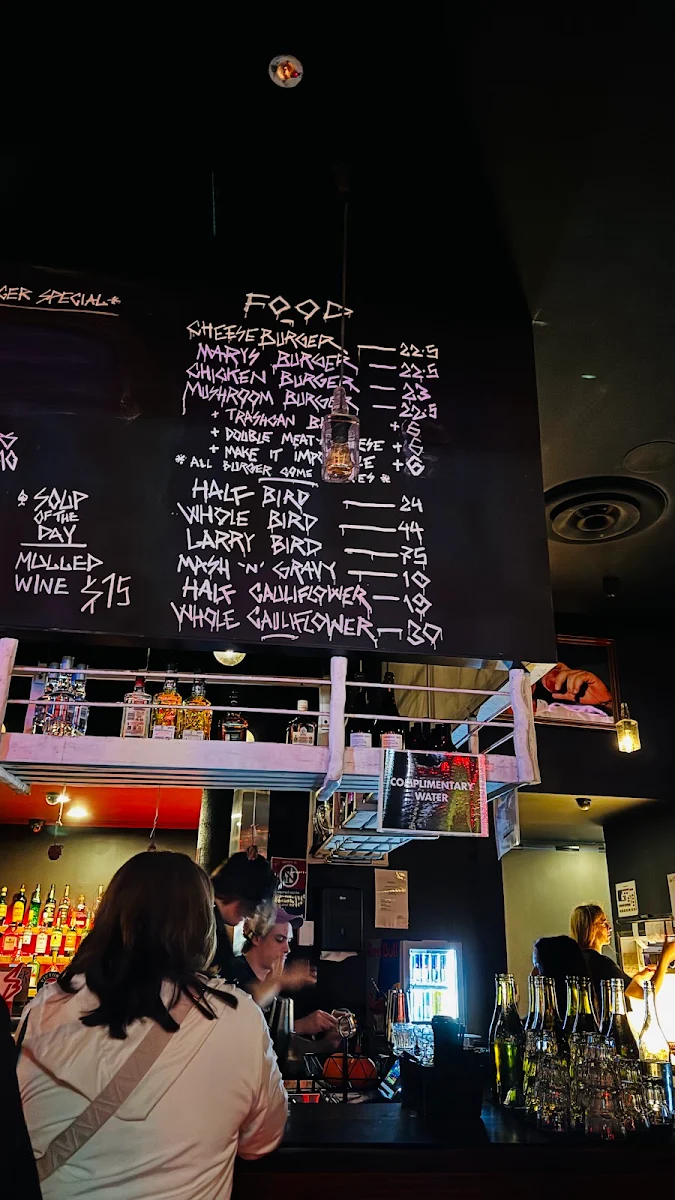 GER SPECIAL*
10
♠ SOUP
OF THE
DAY
MULLED
WINE $15
FOOD
CHEESEBURGER — 22.5
MARYS BURGER — 22.5
CHICKEN BURGER — 23
MUSHROOM BURGER — 22.5
+ TRASHCAN +6
+ DOUBLE MEAT +
+ MAKE IT +6
* ALL BURGER COME *
HALF BIRD — 24
WHOLE BIRD — 44
LARRY BIRD — 75
MASH 'N' GRAVY — 10
HALF CAULIFLOWER — 19
WHOLE CAULIFLOWER — 30
COMPLIMENTARY
WATER